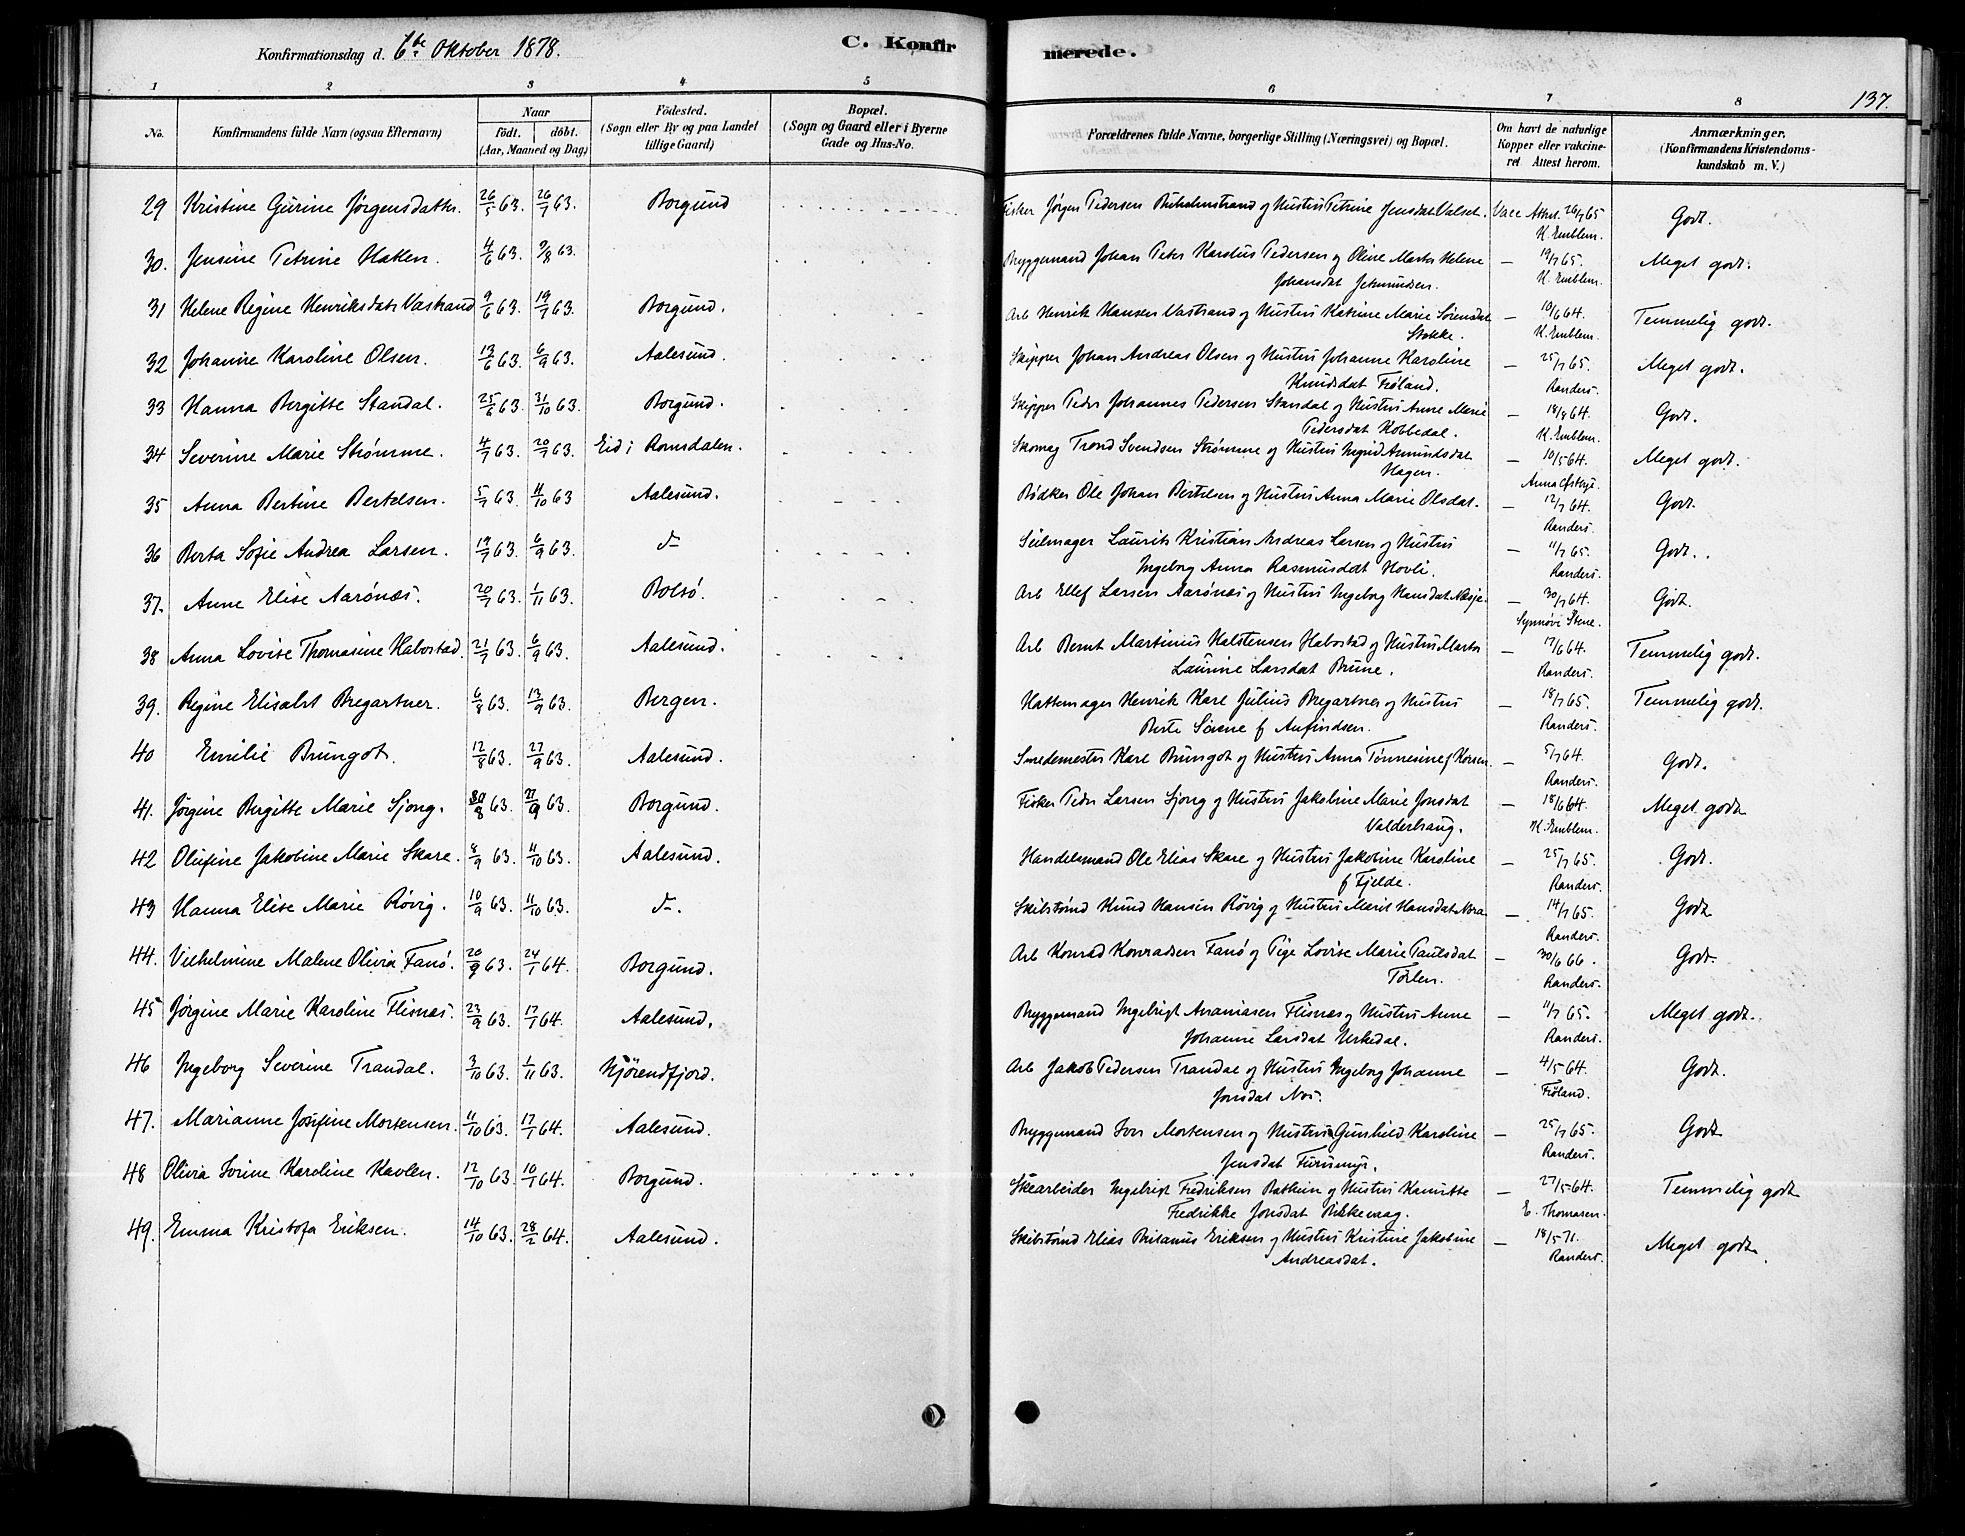 Konfirmationsdag d. 6te Oktober 1878.
C. Konfirmerede.
137.
1 2 3 4 5 6 7 8
No. Konfirmandens fulde Navn (ogsaa Efternavn) Naar födt. döbt. (Aar, Maaned og Dag) Födested. (Sogn eller By og paa Landet tillige Gaard) Bopæl. (Sogn og Gaard eller i Byerne Gade og Hus-No. Forældrenes fulde Navne, borgerlige Stilling (Næringsvei) og Bopæl. Om havt de naturlige Kopper eller vakcineret. Attest herom. Anmærkninger. (Konfirmandens Kristendomskundskab m. V.)
29 Kristine Gurine Jørgensdatter. 26/5 63. 26/7 63. Borgund Fisker Jørgen Pedersen Buholmstrand og Hustru Petrine Jensdat Valset. Vacc Attest. 26/7 65 Godt.
K. Emblem.
30. Jensine Petrine Haken. 4/6 63. 9/8 63. Bryggemand Johan Peter Karolus Pedersen og Oline Marta Helene — 19/7 65. Meget godt.
Johansdat Jetmundsen. K. Emblem.
31 Helene Regine Henriksdatr Vastrand 9/6 63. 19/7 63. Borgund. Arb Henrik Hansen Vastrand og Hustru Katrine Marie Sørensdat — 19/6 64. Temmelig godt.
Stokke. K. Emblem.
32 Johanne Karoline Olsen. 13/6 63. 6/9 63. Aalesund. Skipper Johan Andreas Olsen og Hustru Johanne Karoline — 25/7 65. Meget godt.
Knudsdat Frøland. Randers.
33 Hanna Bergitte Standal. 25/6 63. 31/10 63. Borgund. Skipper Peder Johannes Pedersen Standal og Hustru Anne Marie — 18/8 64. Godt.
Pedersdat Kobbedal. K. Emblem.
34 Severine Marie Strømme. 4/7 63. 20/9 63. Eid i Romsdalen. Skomag Trond Svendsen Strømme og Hustru Ingrid Amundsdat — 10/5 64. Meget godt.
Hagen.
35 Anna Bertine Bertelsen. 5/7 63. 11/10 63 Aalesund. Bødker Ole Johan Bertelsen og Hustru Anna Marie Olsdat. — 12/7 64. Godt.
Randers.
36 Berta Sofie Andrea Larsen. 19/7 63. 6/9 63. d— Seilmager Laurits Kristian Andreas Larsen og Hustru — 11/7 65. Godt.
Ingeborg Anna Rasmusdat Hovli. Randers.
37. Anne Elise Aarønæs. 20/7 63. 1/11 63. Bolsö. Arb Ellef Larsen Aarønæs og Hustru Ingeborg Hansdat Næsje. — 30/7 64. Godt.
Synnøvi Stene.
38 Anna Lovise Thomasine Habostad. 21/7 63. 6/9 63. Aalesund. Arb Bernt Martinus Halstensen Habostad og Hustru Marta — 17/6 64. Temmelig godt.
Laurine Larsdat Brune. Randers.
39. Regine Elisabet Bregartner. 6/8 63. 13/9 63. Bergen. Hattemager Henrik Karl Julius Bregartner og Hustru — 18/7 65. Temmelig godt.
Berte Serene f Anfindsen. Randers.
40 Emilie Brungot. 12/8 63. 27/9 63. Aalesund. Smedemester Karl Brungot og Hustru Anna Tønnesine f Korsen. — 5/7 64. Godt.
Randers.
41. Jørgine Bergitte Marie Sjong. 30/8 63. 27/9 63. Borgund. Fisker Peder Larsen Sjong og Hustru Jakobine Marie Jonsdat — 18/6 64. Meget godt
Valderhaug. K. Emblem.
42 Olufine Jakobine Marie Skare. 8/9 63. 11/10 63. Aalesund. Handelsmand Ole Elias Skare og Hustru Jakobine Karoline — 25/7 65. Godt.
f Fjelde. Randers.
43 Hanna Elise Marie Røvig. 10/9 63. 11/10 63. d—. Skibstømd Knud Hansen Røvig og Hustru Marit Hansdat Nora — 14/7 65. Godt
Randers.
44. Vilhelmine Malene Olivia Fanø. 20/9 63. 24/1 64. Borgund. Arb Konrad Konradsen Fanø og Pige Lovise Marie Paulsdat — 30/6 66. Godt.
Tørlen. Randers.
45 Jørgine Marie Karoline Flisnæs. 23/9 63. 17/1 64. Aalesund. Bryggemand Ingebrigt Ananiasen Flisnæs og Hustru Anne — 11/7 65. Meget godt.
Johanne Larsdat Urkedal. Randers.
46 Ingeborg Severine Trandal. 3/10 63. 1/11 63. Hjörendfjord. Arb Jakob Pedersen Trandal og Hustru Ingeborg Johanne — 4/5 64. Godt.
Jonsdat Nos. Frøland.
47. Marianne Josefine Mortensen. 11/10 63. 17/1 64. Aalesund. Bryggemand Iver Mortensen og Hustru Gunhild Karoline — 25/7 65. Godt
Jensdat Furumyr. Randers.
48 Olivia Serine Karoline Kavlen. 12/10 63. 10/1 64. Borgund. Skearbeider Ingebrigt Fredriksen Ratheim og Hustru Kanutte — 27/5 64. Temmelig godt
Fredrikke Jonsdat Rikkevaag. E. Thomasen.
49. Emma Kristofa Eriksen. 14/10 63. 28/2 64. Aalesund. Skibstømd Elias Britanus Eriksen og Hustru Kristine Jakobine — 18/5 71. Meget godt.
Andreasdat. Randers.